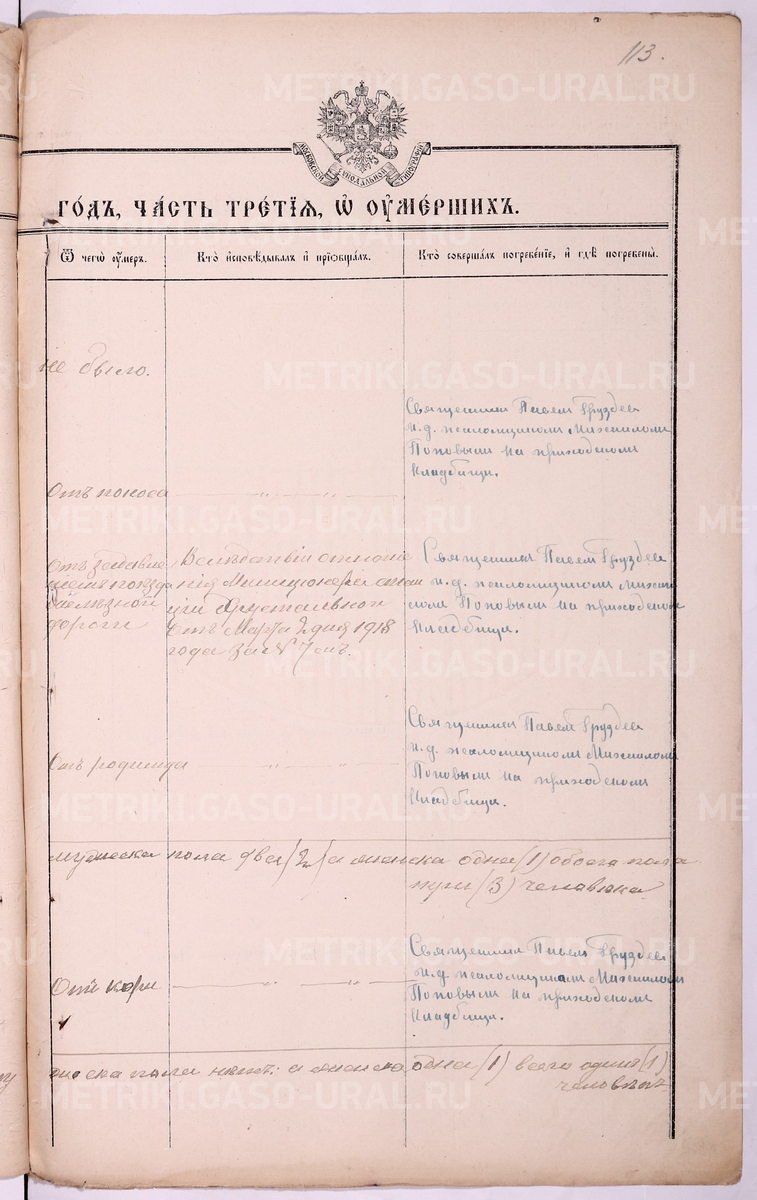 113.
МОСКОВСКОЙ СѴНОДАЛЬНОЙ ТИПОГРАФІИ
ГОДЪ, ЧАСТЬ ТРЕТІЯ, Ѡ ОУМЕРШИХЪ.
Ѿ чегѡ оумеръ.
Кто исповѣдывалъ и пріобщалъ.
Кто совершалъ погребеніе, и гдѣ погребены.
не было.
Священник Павел Груздев
и.д. псаломщиком Михаилом
Поповым на приходском
кладбище.
Отъ поноса
Отъ
поезда
железной
дороги
Вследствіи отноше
нія Милиціонера стан
ціи Хрусталевкой
отъ Марта 2 дня 1918
года за № 7
Священник Павел Груздев
и.д. псаломщиком Михаи
лом Поповым на приходском
кладбище.
Отъ родимца
Священник Павел Груздев
и.д. псаломщиком Михаилом
Поповым на приходском
кладбище.
мужеска пола два (2) а женска одна (1) обоего пола
три (3) человека
От кори
Священник Павел Груздев
и.д. псаломщиком Михаилом
Поповым на приходском
кладбище.
пола нетъ: а женска одна (1) всего один (1)
человекъ
METRIKI.GASO-URAL.RU